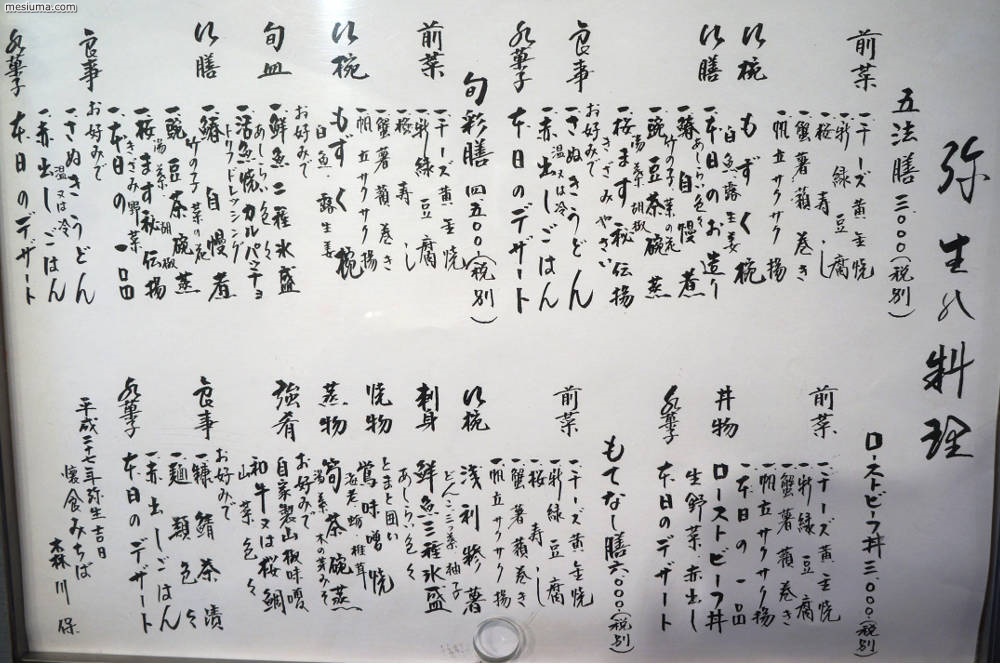 mesiuma.com
弥生の料理
五法膳 三、〇〇〇(税別)
前菜
一、チーズ黄金焼
一、新緑豆腐
一、桜寿し
一、蟹薯蕷巻き
一、帆立サクサク揚
吸椀
もずく椀
白魚 露生姜
吸膳
一、本日のお造り
あしらい色々
一、鰆自慢煮
竹の子 菜の花
一、豌豆茶碗蒸
湯葉 胡椒
一、桜ます秘伝揚
きざみやさい
食事
お好みで
一、さぬきうどん
温又は冷
一、赤出しごはん
水菓子
本日のデザート
旬彩膳 (四、五〇〇(税別)
前菜
一、チーズ黄金焼
一、新緑豆腐
一、桜寿し
一、蟹薯蕷巻き
一、帆立サクサク揚
吸椀
もずく椀
白魚 露生姜
旬皿
お好みで
一、鮮魚二種氷盛
あしらい色々
一、活魚焼カルパッチョ
トリフドレッシング
吸膳
一、鰆自慢煮
竹の子 菜の花
一、豌豆茶碗蒸
湯葉 胡椒
一、桜ます秘伝揚
きざみ野菜
一、本日の一品
食事
お好みで
一、さぬきうどん
温又は冷
一、赤出しごはん
水菓子
本日のデザート
ローストビーフ丼 三、〇〇〇(税別)
前菜
一、チーズ黄金焼
一、新緑豆腐
一、蟹薯蕷巻き
一、帆立サクサク揚
一、本日の一品
丼物
ローストビーフ丼
生野菜 赤出し
水菓子
本日のデザート
もてなし膳 六、〇〇〇(税別)
前菜
一、チーズ黄金焼
一、新緑豆腐
一、桜寿し
一、蟹薯蕷巻き
一、帆立サクサク揚
吸椀
浅利糝薯
どんこ 三つ葉 柚子
刺身
鮮魚三種氷盛
あしらい色々
焼物
とまと囲い
鴬味噌焼
海老 蛤 椎茸
蒸物
筍茶碗蒸
湯葉 木の芽みそ
強肴
お好みで
自家製山椒味噌
和牛又は桜鯛
山菜色々
食事
お好みで
一、糠鯖茶漬
一、麺類色々
一、赤出しごはん
水菓子
本日のデザート
平成二十七年弥生吉日
懐食みちば
森川 保